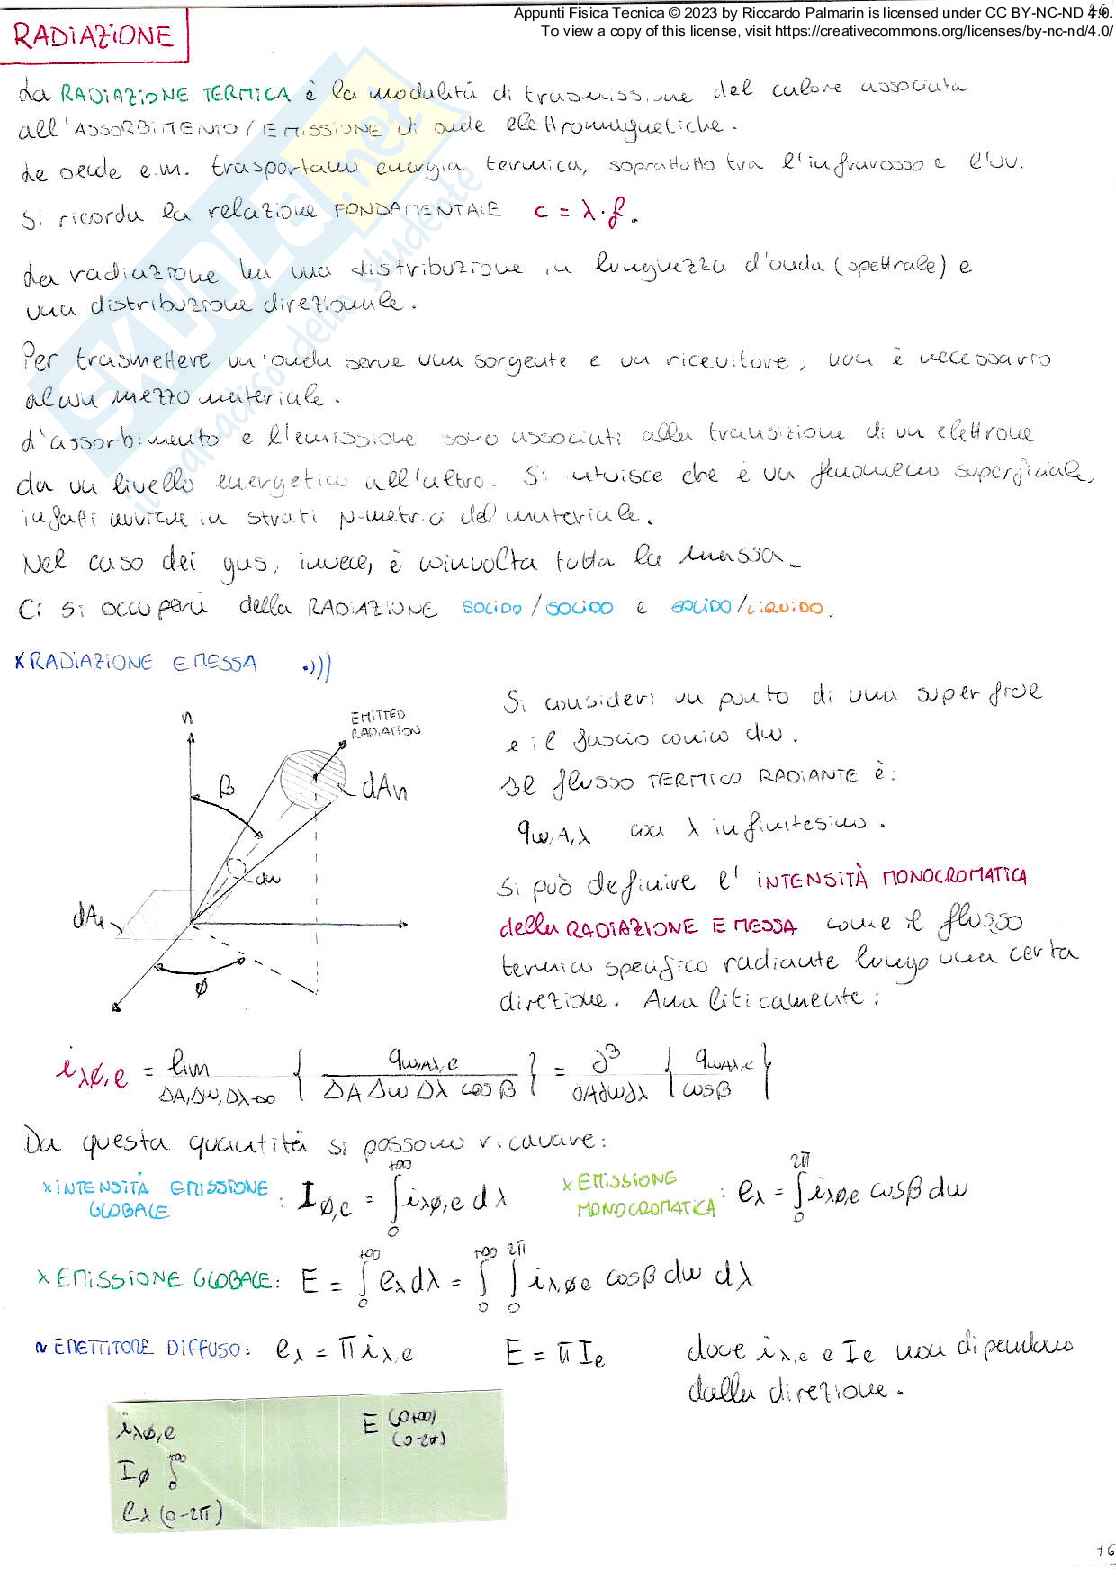 Appunti Fisica Tecnica © 2023 by Riccardo Palmarin is licensed under CC BY-NC-ND 4.0.
To view a copy of this license, visit https://creativecommons.org/licenses/by-nc-nd/4.0/
RADIAZIONE
La RADIAZIONE TERMICA è la modalità di trasmissione del calore associata
all'ASSORBIMENTO/EMISSIONE di onde elettromagnetiche.
Le onde e.m. trasportano energia termica, soprattutto tra l'infrarosso e l'UV.
Si ricorda la relazione FONDAMENTALE c = λ·f.
La radiazione ha una distribuzione in lunghezza d'onda (spettrale) e
una distribuzione direzionale.
Per trasmettere un'onda serve una sorgente e un ricevitore, non è necessario
alcun mezzo materiale.
L'assorbimento e l'emissione sono associati alla transizione di un elettrone
da un livello energetico all'altro. Si intuisce che è un fenomeno superficiale,
infatti avviene in strati μ-metrici del materiale.
Nel caso dei gas, invece, è coinvolta tutta la massa.
Ci si occuperà della RADIAZIONE SOLIDO/SOLIDO e SOLIDO/LIQUIDO.
x RADIAZIONE EMESSA •)))
n
EMITTED
RADIATION
β
dAn
dω
dA₁
φ
Si consideri un punto di una superficie
e il fascio conico dω.
Il flusso TERMICO RADIANTE è:
qω,A,λ con λ infinitesimo.
Si può definire l'INTENSITÀ MONOCROMATICA
della RADIAZIONE EMESSA come il flusso
termico specifico radiante lungo una certa
direzione. Analiticamente:
iλφ,e = lim ΔA,Δω,Δλ→0 { qωAλ,e / ΔA Δω Δλ cosβ } = ∂³/∂A∂ω∂λ { qωAλ,e / cosβ }
Da questa quantità si possono ricavare:
x INTENSITÀ EMISSIONE GLOBALE: Iφ,e = ∫₀^+∞ iλφ,e dλ
x EMISSIONE MONOCROMATICA: eλ = ∫₀^2π iλφe cosβ dω
x EMISSIONE GLOBALE: E = ∫₀^+∞ eλ dλ = ∫₀^+∞ ∫₀^2π iλ,φe cosβ dω dλ
~ EMETTITORE DIFFUSO: eλ = π iλ,e E = π Ie dove iλ,e e Ie non dipendono
dalla direzione.
iλφ,e
E (0+∞)
(0-2π)
Iφ ∫₀^+∞
eλ (0-2π)
16
SKUOLA.net
il paradiso dello studente